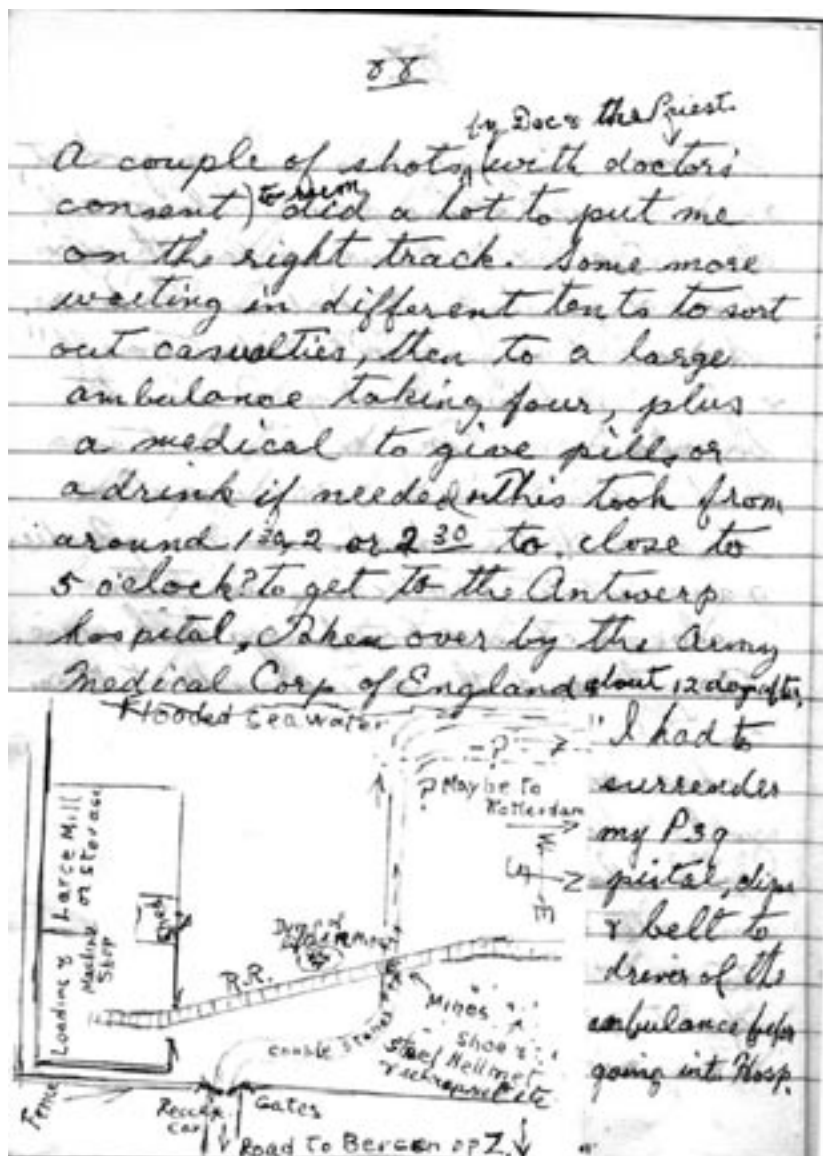 88
by Doc & the Priest
A couple of shots (with doctors
consent) to room did a lot to put me
on the right track. Some more
waiting in different tents to sort
out casualties, then to a large
ambulance taking four, plus
a medical to give pills or
a drink if needed. This took from
around 1 30, 2 or 2 30 to close to
5 o'clock? to get to the Antwerp
hospital, Taken over by the Army
Medical Corp of England about 12 days after
Flooded Sea water
"I had to
surrender
my P39
pistol, clips
& belt to
driver of the
ambulance before
going int. Hosp.
?
? Maybe to
Rotterdam
W
S N
E
Large Mill
or Storage
Loading &
Machine
Shop
R.R.
Mines
Shoe &
Steel Hellmet
etc
Cobble Stones
Fence
Gates
car
Road to Bergen op Z.